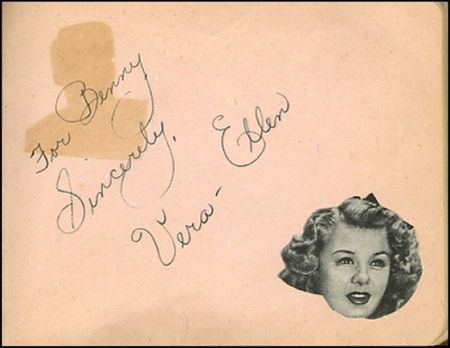 For Benny
Sincerely,
Vera-Ellen